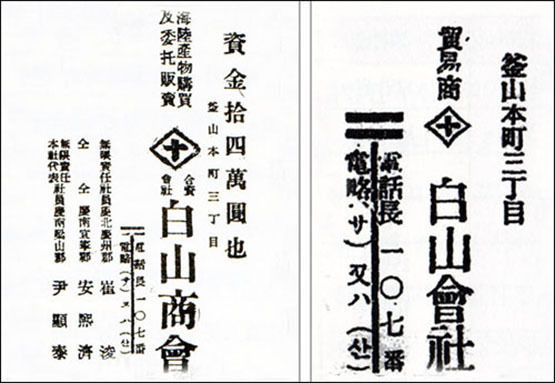 資金拾四萬圓也
釜山本町三丁目
海陸產物購買
及委托販賣
十
合資
會社
白山商會
電話長一〇七番
電略(サ)又ハ(산)
無限責任社員慶北慶州郡 崔浚
仝 仝 慶南宜寧郡 安熙濟
無限責任社員慶南梁山郡 尹顯泰
本社代表
釜山本町三丁目
貿易商 十 白山會社
電話長 一〇七番
電略、サ)又ハ(산)